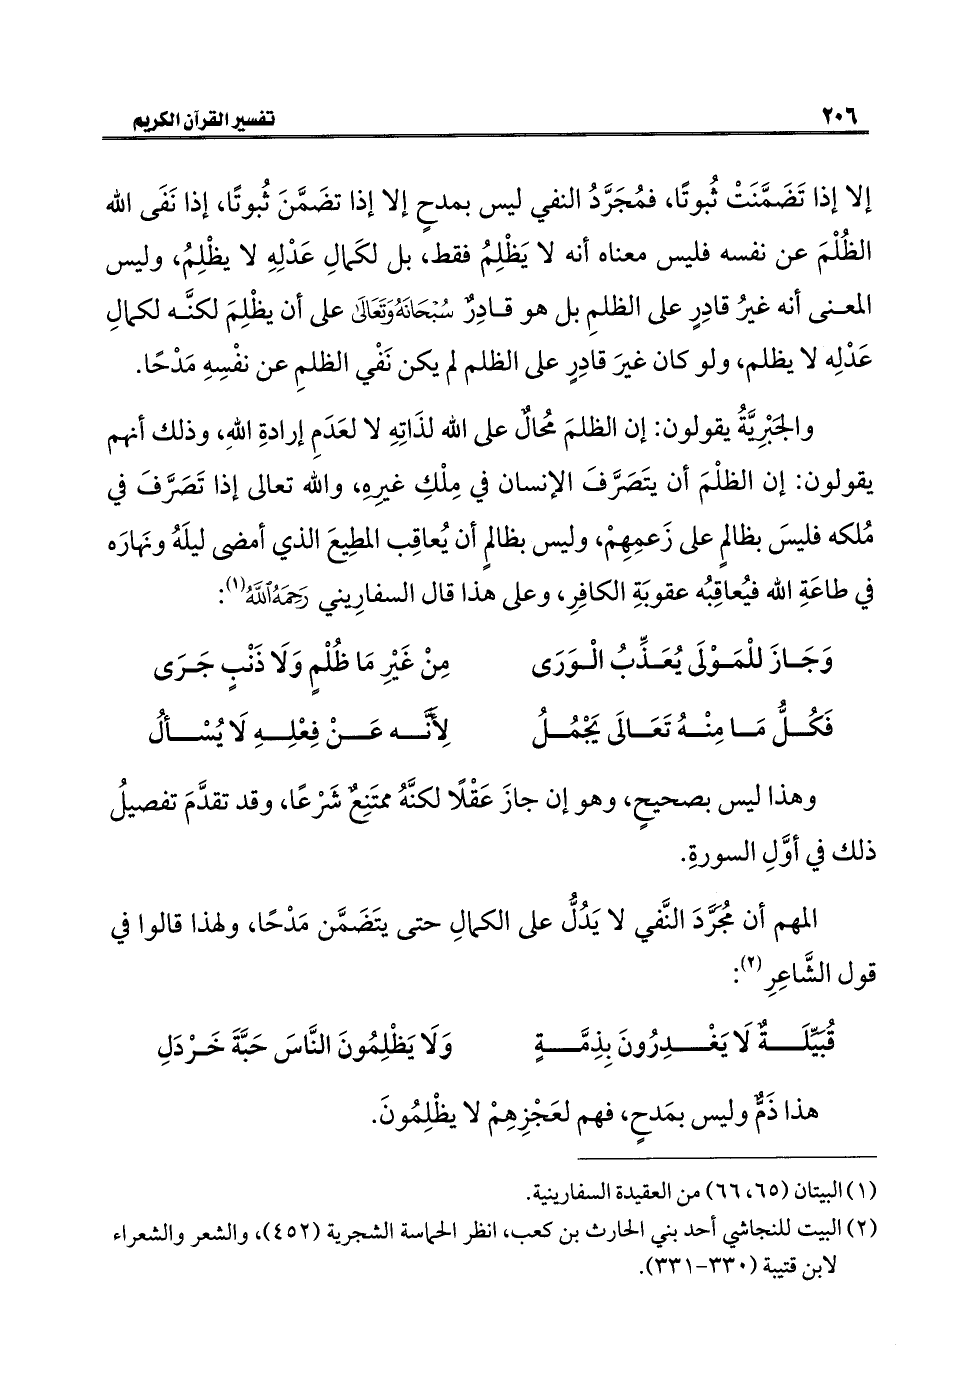 ٢٠٦ تفسير القرآن الكريم
إلا إذا تَضَمَّنَتْ ثُبوتًا، فمُجَرَّدُ النفي ليس بمدحٍ إلا إذا تضَمَّنَ ثُبوتًا، إذا نَفَى الله
الظُلْمَ عن نفسه فليس معناه أنه لا يَظْلِمُ فقط، بل لكَمالِ عَدْلِهِ لا يظْلِمُ، وليس
المعنى أنه غيرُ قادرٍ على الظلمِ بل هو قادِرٌ سُبْحَانَهُ وَتَعَالَى على أن يظْلِمَ لكنَّه لكمالِ
عَدْلِه لا يظلم، ولو كان غيرَ قادرٍ على الظلم لم يكن نَفْي الظلمِ عن نفْسِهِ مَدْحًا.
والجَبْرِيَّةُ يقولون: إن الظلمَ مُحالٌ على الله لذَاتِهِ لا لعَدَمِ إرادةِ اللهِ، وذلك أنهم
يقولون: إن الظلْمَ أن يتَصَرَّفَ الإنسان في مِلْكِ غيرِهِ، والله تعالى إذا تَصَرَّفَ في
مُلكه فليسَ بظالمٍ على زَعمِهِمْ، وليس بظالمٍ أن يُعاقِب المطيعَ الذي أمضى ليلَهُ ونهارَه
في طاعَةِ الله فيُعاقِبُه عقوبَةِ الكافِرِ، وعلى هذا قال السفارِيني رَحِمَهُ ٱللَّهُ(١):
وَجَازَ للْمَوْلَى يُعَذِّبُ الْورَى مِنْ غَيْرِ مَا ظُلْمٍ وَلَا ذَنْبٍ جَرَى
فَكُلُّ مَا مِنْهُ تَعَالَى يَجْمُلُ لِأَنَّه عَنْ فِعْلِهِ لَا يُسْألُ
وهذا ليس بصحيحٍ، وهو إن جازَ عَقْلًا لكنَّهُ ممتَنِعٌ شَرْعًا، وقد تقدَّمَ تفصيلُ
ذلك في أوَّلِ السورةِ.
المهم أن مُجَرَّدَ النَّفي لا يَدُلُّ على الكمالِ حتى يتَضَمَّن مَدْحًا، ولهذا قالوا في
قول الشَّاعِرِ(٢):
قُبَيِّلَةٌ لَا يَغْدِرُونَ بِذِمَّةٍ وَلَا يَظْلِمُونَ النَّاسَ حَبَّةَ خَرْدَلِ
هذا ذَمٌّ وليس بمَدحٍ، فهم لعَجْزِهِمْ لا يظْلِمُونَ.
(١) البيتان (٦٥، ٦٦) من العقيدة السفارينية.
(٢) البيت للنجاشي أحد بني الحارث بن كعب، انظر الحماسة الشجرية (٤٥٢)، والشعر والشعراء
لابن قتيبة (٣٣٠-٣٣١).